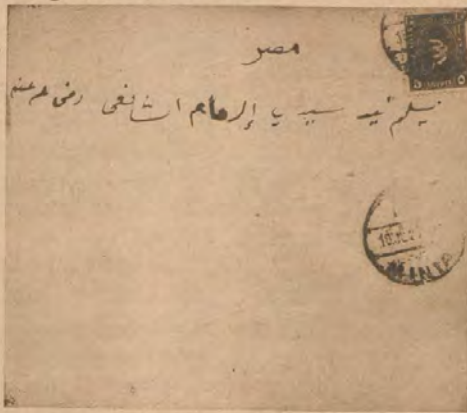 مصر
يسلم ليد سيدي الإمام الشافعي رضى الله عنه
MINIA